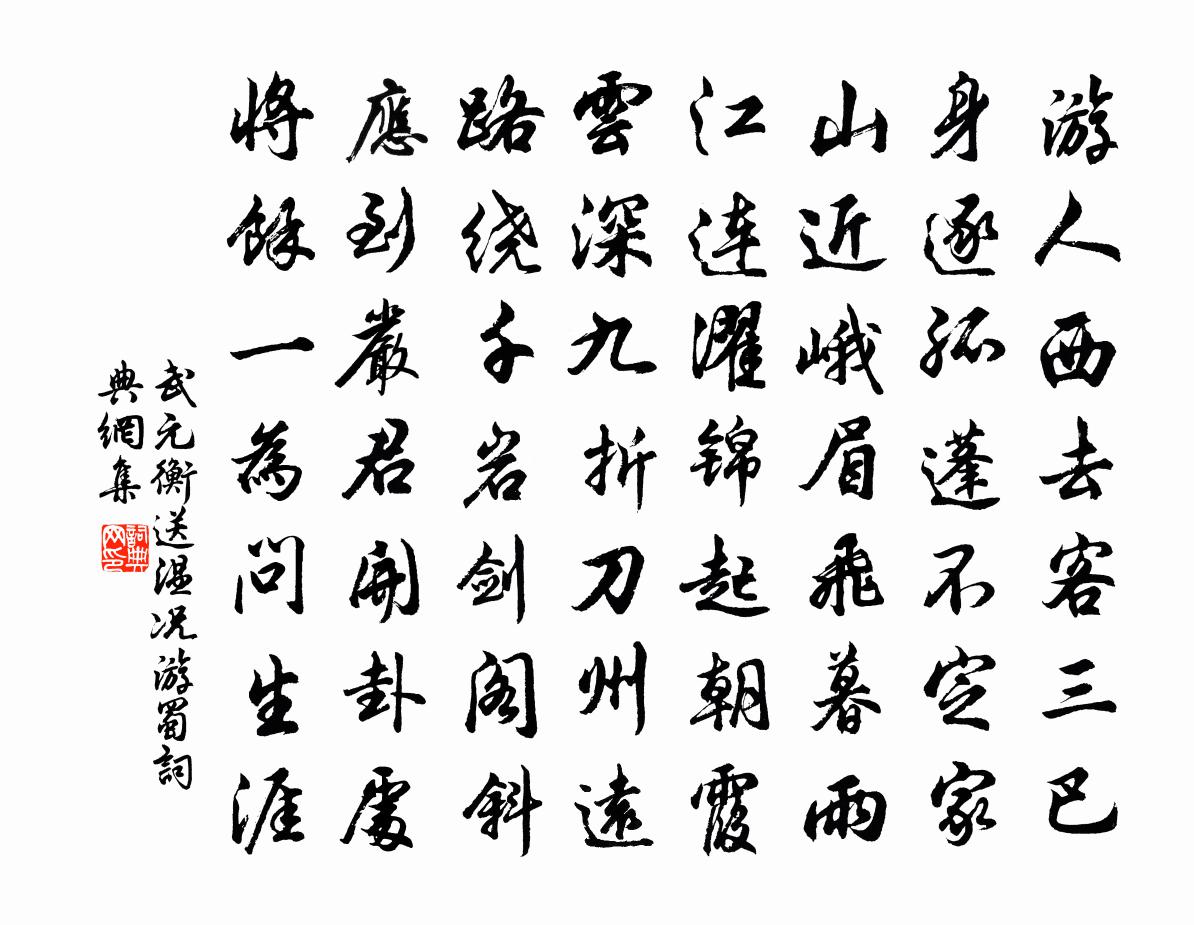 游人西去客三巴
身逐孤蓬不定家
山近峨眉飛暮雨
江連濯锦起朝霞
雲深九折刀州遠
路绕千岩剑阁斜
應到嚴君開卦處
將餘一為問生涯
武元衡送温况游蜀詞
典網集
詞典网印